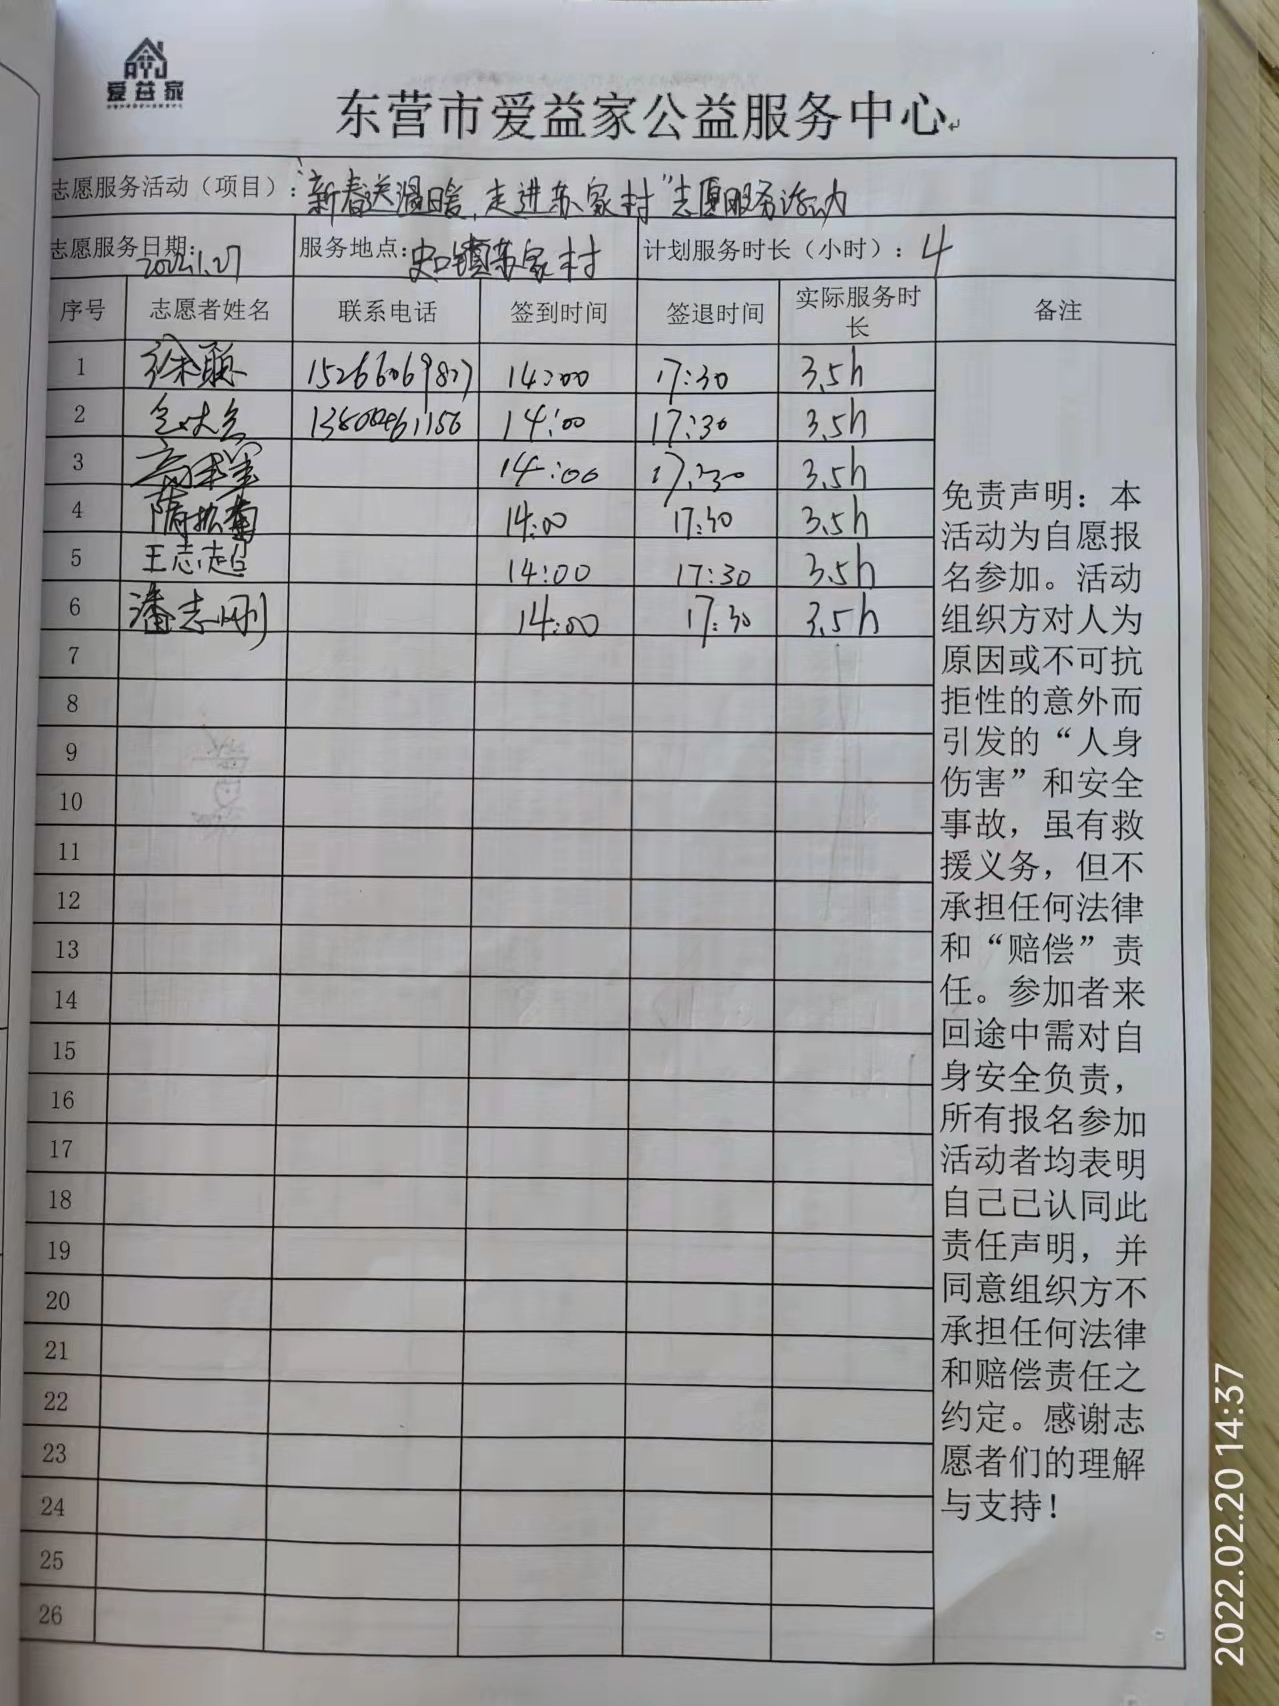 爱益家
东营市爱益家公益服务中心
志愿服务活动（项目）：“新春送温暖，走进苏家村”志愿服务活动
志愿服务日期：2022.1.27 服务地点：史口镇苏家村 计划服务时长（小时）：4
序号 志愿者姓名 联系电话 签到时间 签退时间 实际服务时长 备注
1 徐聪 14:00 17:30 3.5h
2 14:00 17:30 3.5h
3 14:00 17:30 3.5h
4 14:00 17:30 3.5h
5 王志超 14:00 17:30 3.5h
6 潘志刚 14:00 17:30 3.5h
7
8
9
10
11
12
13
14
15
16
17
18
19
20
21
22
23
24
25
26
免责声明：本
活动为自愿报
名参加。活动
组织方对人为
原因或不可抗
拒性的意外而
引发的“人身
伤害”和安全
事故，虽有救
援义务，但不
承担任何法律
和“赔偿”责
任。参加者来
回途中需对自
身安全负责，
所有报名参加
活动者均表明
自己已认同此
责任声明，并
同意组织方不
承担任何法律
和赔偿责任之
约定。感谢志
愿者们的理解
与支持！
2022.02.20 14:37